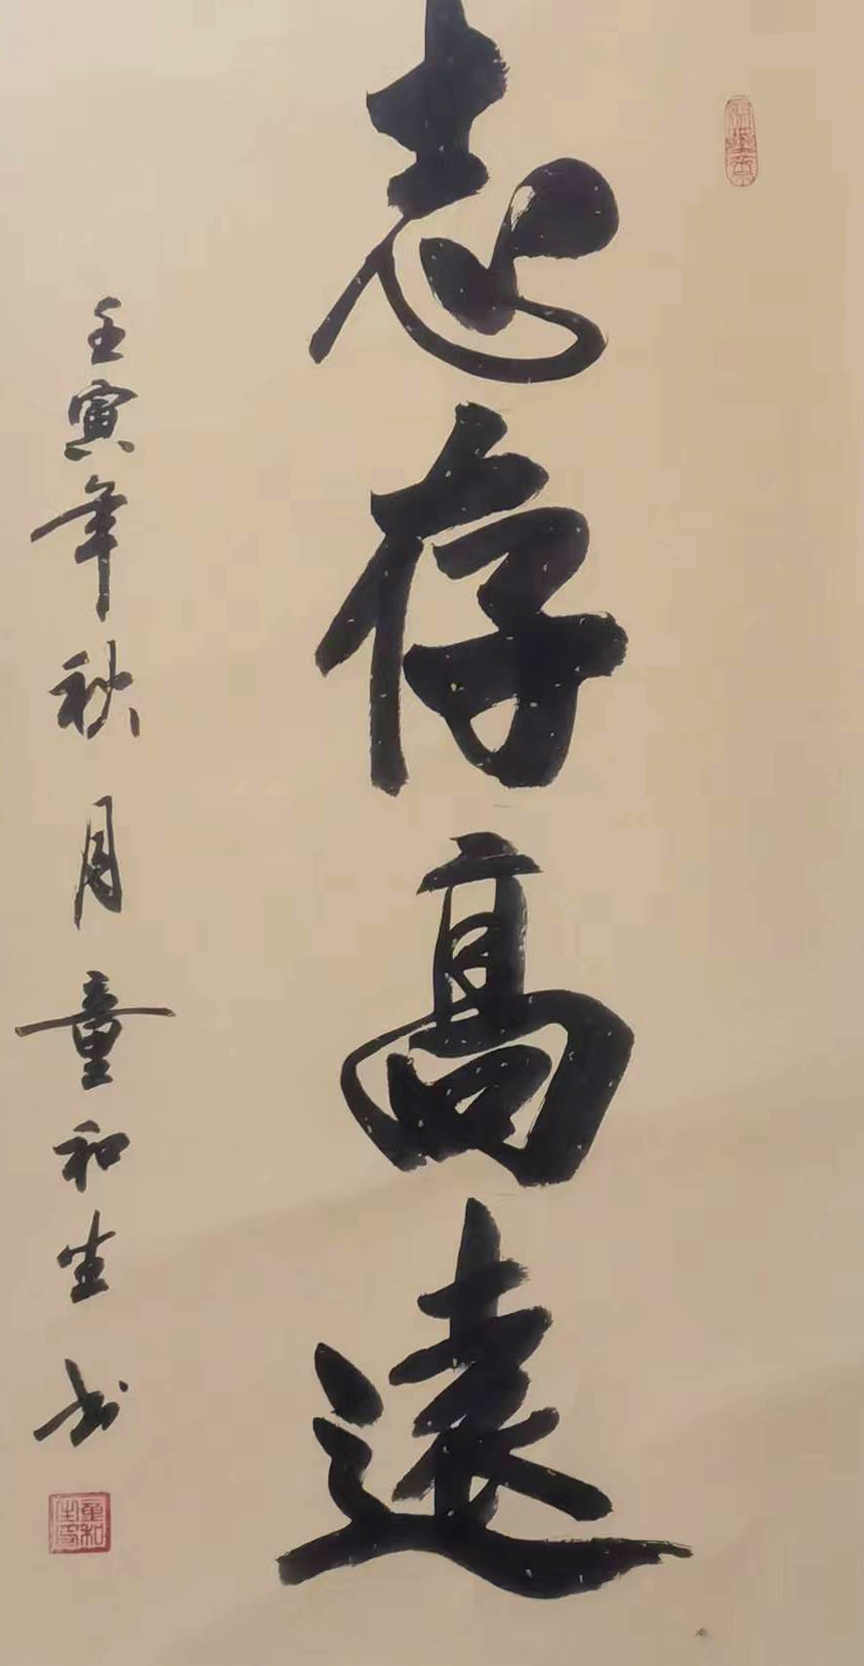 志存高遠
壬寅年秋月童和生书
童和生印